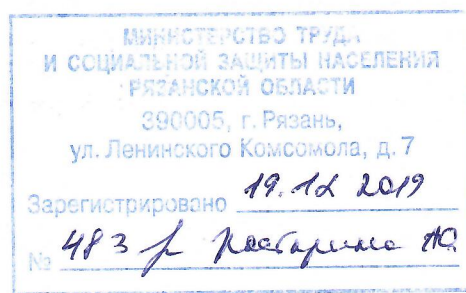 МИНИСТЕРСТВО ТРУДА
И СОЦИАЛЬНОЙ ЗАЩИТЫ НАСЕЛЕНИЯ
РЯЗАНСКОЙ ОБЛАСТИ
390005, г. Рязань,
ул. Ленинского Комсомола, д. 7
Зарегистрировано 19.12 2019
№ 483 р